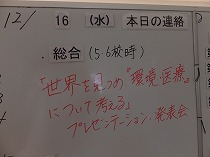 12/
16 (水) 本日の連絡
総合 (5・6校時)
「世界を見つめ "環境医療"
について考える」
プレゼンテーション・発表会